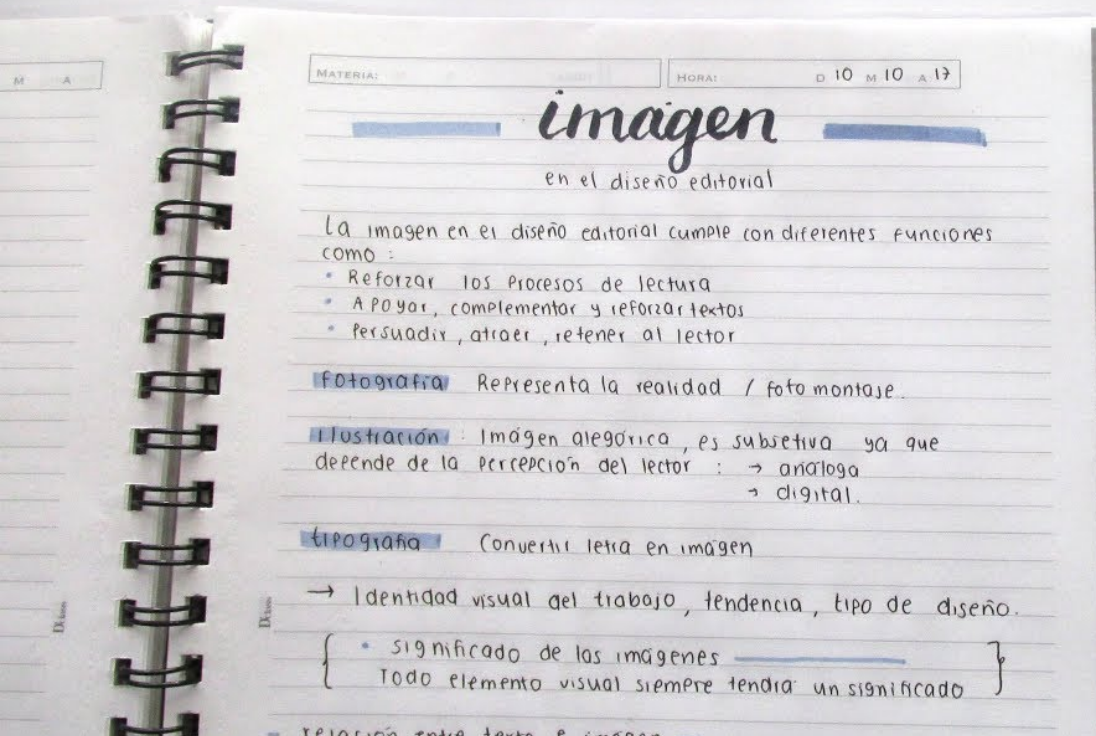 M A
MATERIA:
HORA: D 10 M 10 A 17
imágen
en el diseño editorial
La imagen en el diseño editorial cumple con diferentes funciones
como :
• Reforzar los procesos de lectura
• Apoyar, complementar y reforzar textos
• Persuadir, atraer, retener al lector
fotografía Representa la realidad / foto montaje.
Ilustración : Imágen alegórica, es subjetiva ya que
depende de la percepción del lector : → análoga
→ digital.
tipografía Convertir letra en imágen
→ Identidad visual del trabajo, tendencia, tipo de diseño.
{ • significado de las imágenes
Todo elemento visual siempre tendrá un significado }
relación entre texto e imágen